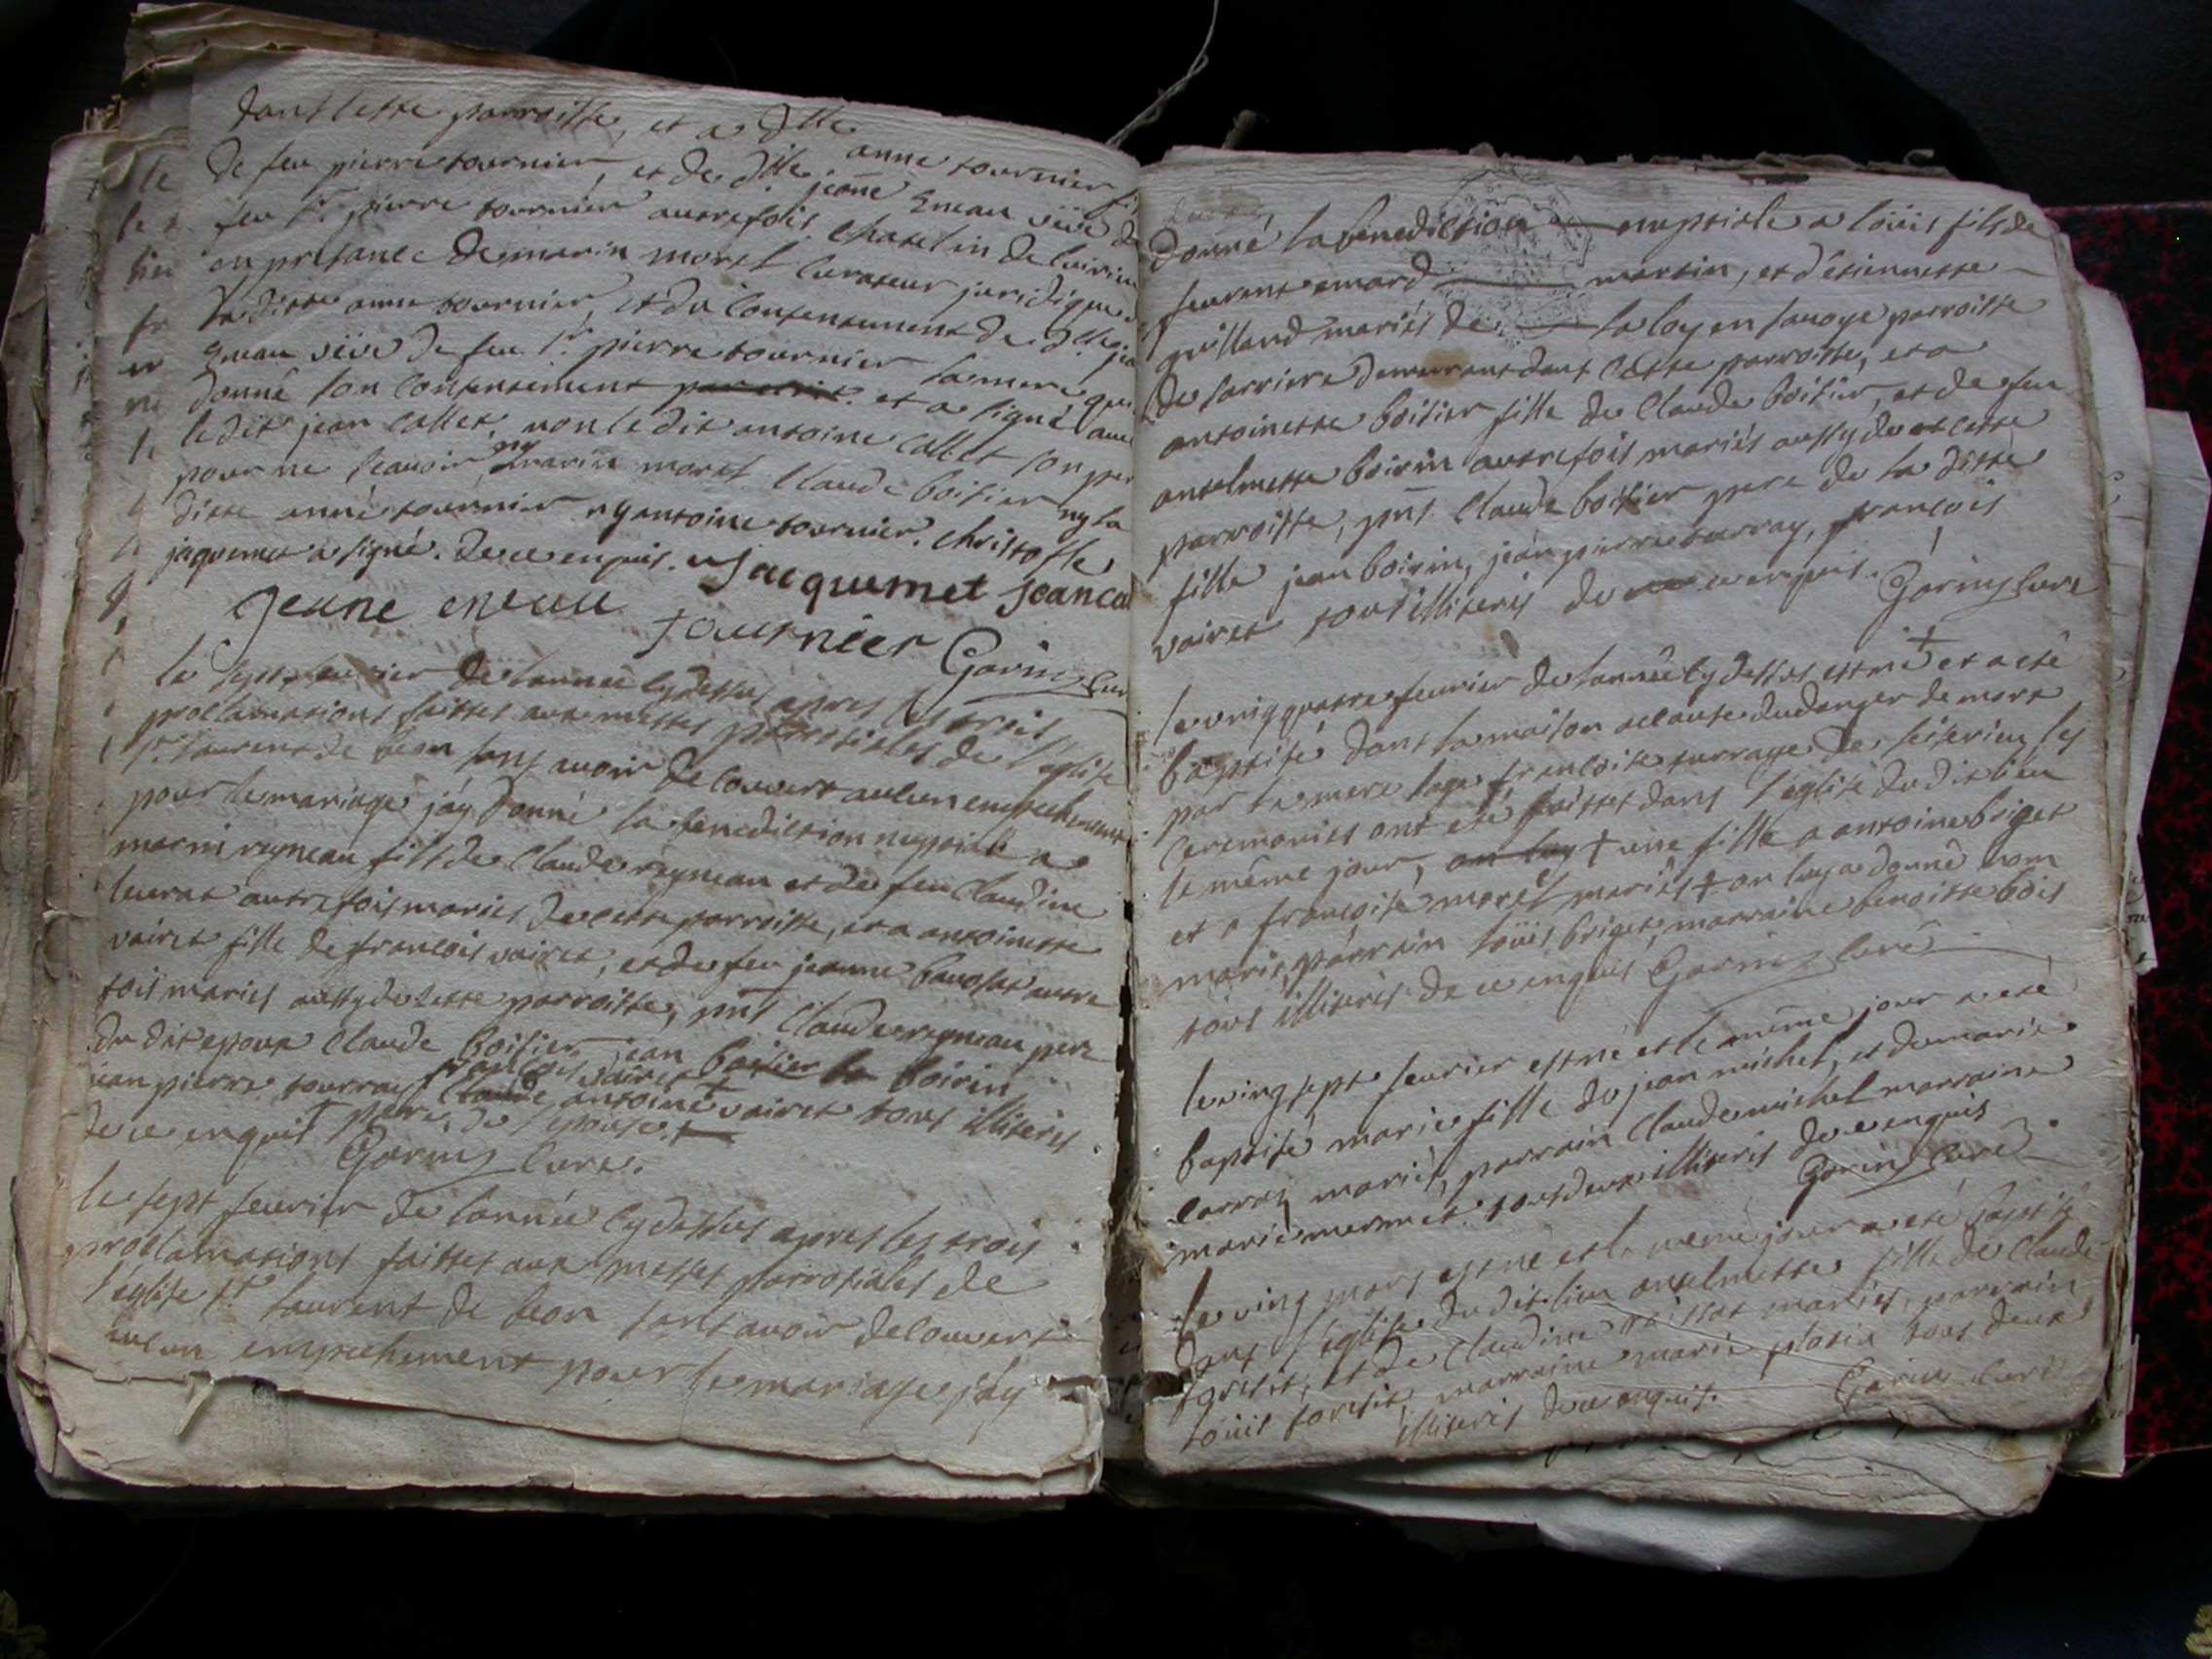 dans cette parroisse, et a dlle anne tournier
de feu pierre tournier, et de dlle jeane Eneau veuve de
feu sr. pierre tournier autrefois Chatelin de
en presance de marin moret Curateur juridique
la ditte anne tournier, et du Consentement de dlle
Eneau veuve de feu sr. pierre tournier sa mere qui
donné son Consentement par ecrit et a signé avec
le dit jean Callet non le dit antoine Callet son per
pour ne scauoir ny marin moret Claude boitier ny la
ditte anne tournier ny antoine tournier. Christofle
jaquemet a signé. de ce enquis. Jacquemet Jean Ca
Jeane eneau tournier Garin Cur
le sept feurier de lannée cy dessus apres les trois
proclamations faittes aux messes parrosiales de l'eglise
st. laurent de beon sans auoir decouuert aucun empechement
pour le mariage j'ay donné la benediction nuptiale a
marin reyneau fils de Claude reyneau et de feu Claudine
leurat autrefois mariés de cette parroisse, et a antoinette
vairet fille de francois vairet, et de feu jeanne bauosat autre
fois mariés aussy de cette parroisse, pnts Claude reyneau pere
du dit epoux Claude boitier jean boitier boirin
jean pierre tourray francois vairet Claude antoine vairet tous illiterés
de ce enquis pere de l'epouse.
Garin Curé.
le sept feurier de lannée cy dessus apres les trois
proclamations faittes aux messes parrosiales de
l'eglise st laurent de beon sans auoir decouuert
aucun empechement pour le mariage j'ay
donné la benediction nuptiale a loüis fils de
feu emard martin, et d'etiennette
guilland mariés de la loy en sauoye parroisse
de demeurant dans Cette parroisse, et a
antoinette boitier fille de Claude boitier, et de feu
anselmette boirin autrefois mariés aussy de cette
parroisse, pnts Claude boitier pere de la ditte
fille jean boirin, jean pierre tourray, francois
vairet tous illiterés de ce enquis. Garin Curé
le ving quatre feurier de lannée cy dessus est né et a eté
baptisé dans la maison a cause du danger de mort
par la mere sage francoise turraye de les
Ceremonies ont eté faittes dans l'eglise du dit lieu
le même jour, une fille a antoine briget
et a francoise moret mariés on luy a donné nom
marie, parrain loüis briget, marraine benoitte bois
tous illiterés de ce enquis Garin Curé
le ving sept feurier est né et le même jour a eté
baptisé marie fille de jean michel, et de marie
Carraz mariés, parrain Claude michel marraine
marie mermet tous deux illiterés de ce enquis
Garin Curé
le ving mars est né et le meme jour a eté baptisé
dans l'eglise du dit lieu anselmette fille de Claude
et de Claudine mariés, parrain
loüis marraine marie tous deux
illiterés de ce enquis. Garin Curé